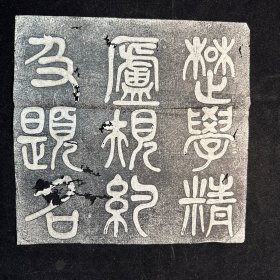 楚學精
廬規約
及題名